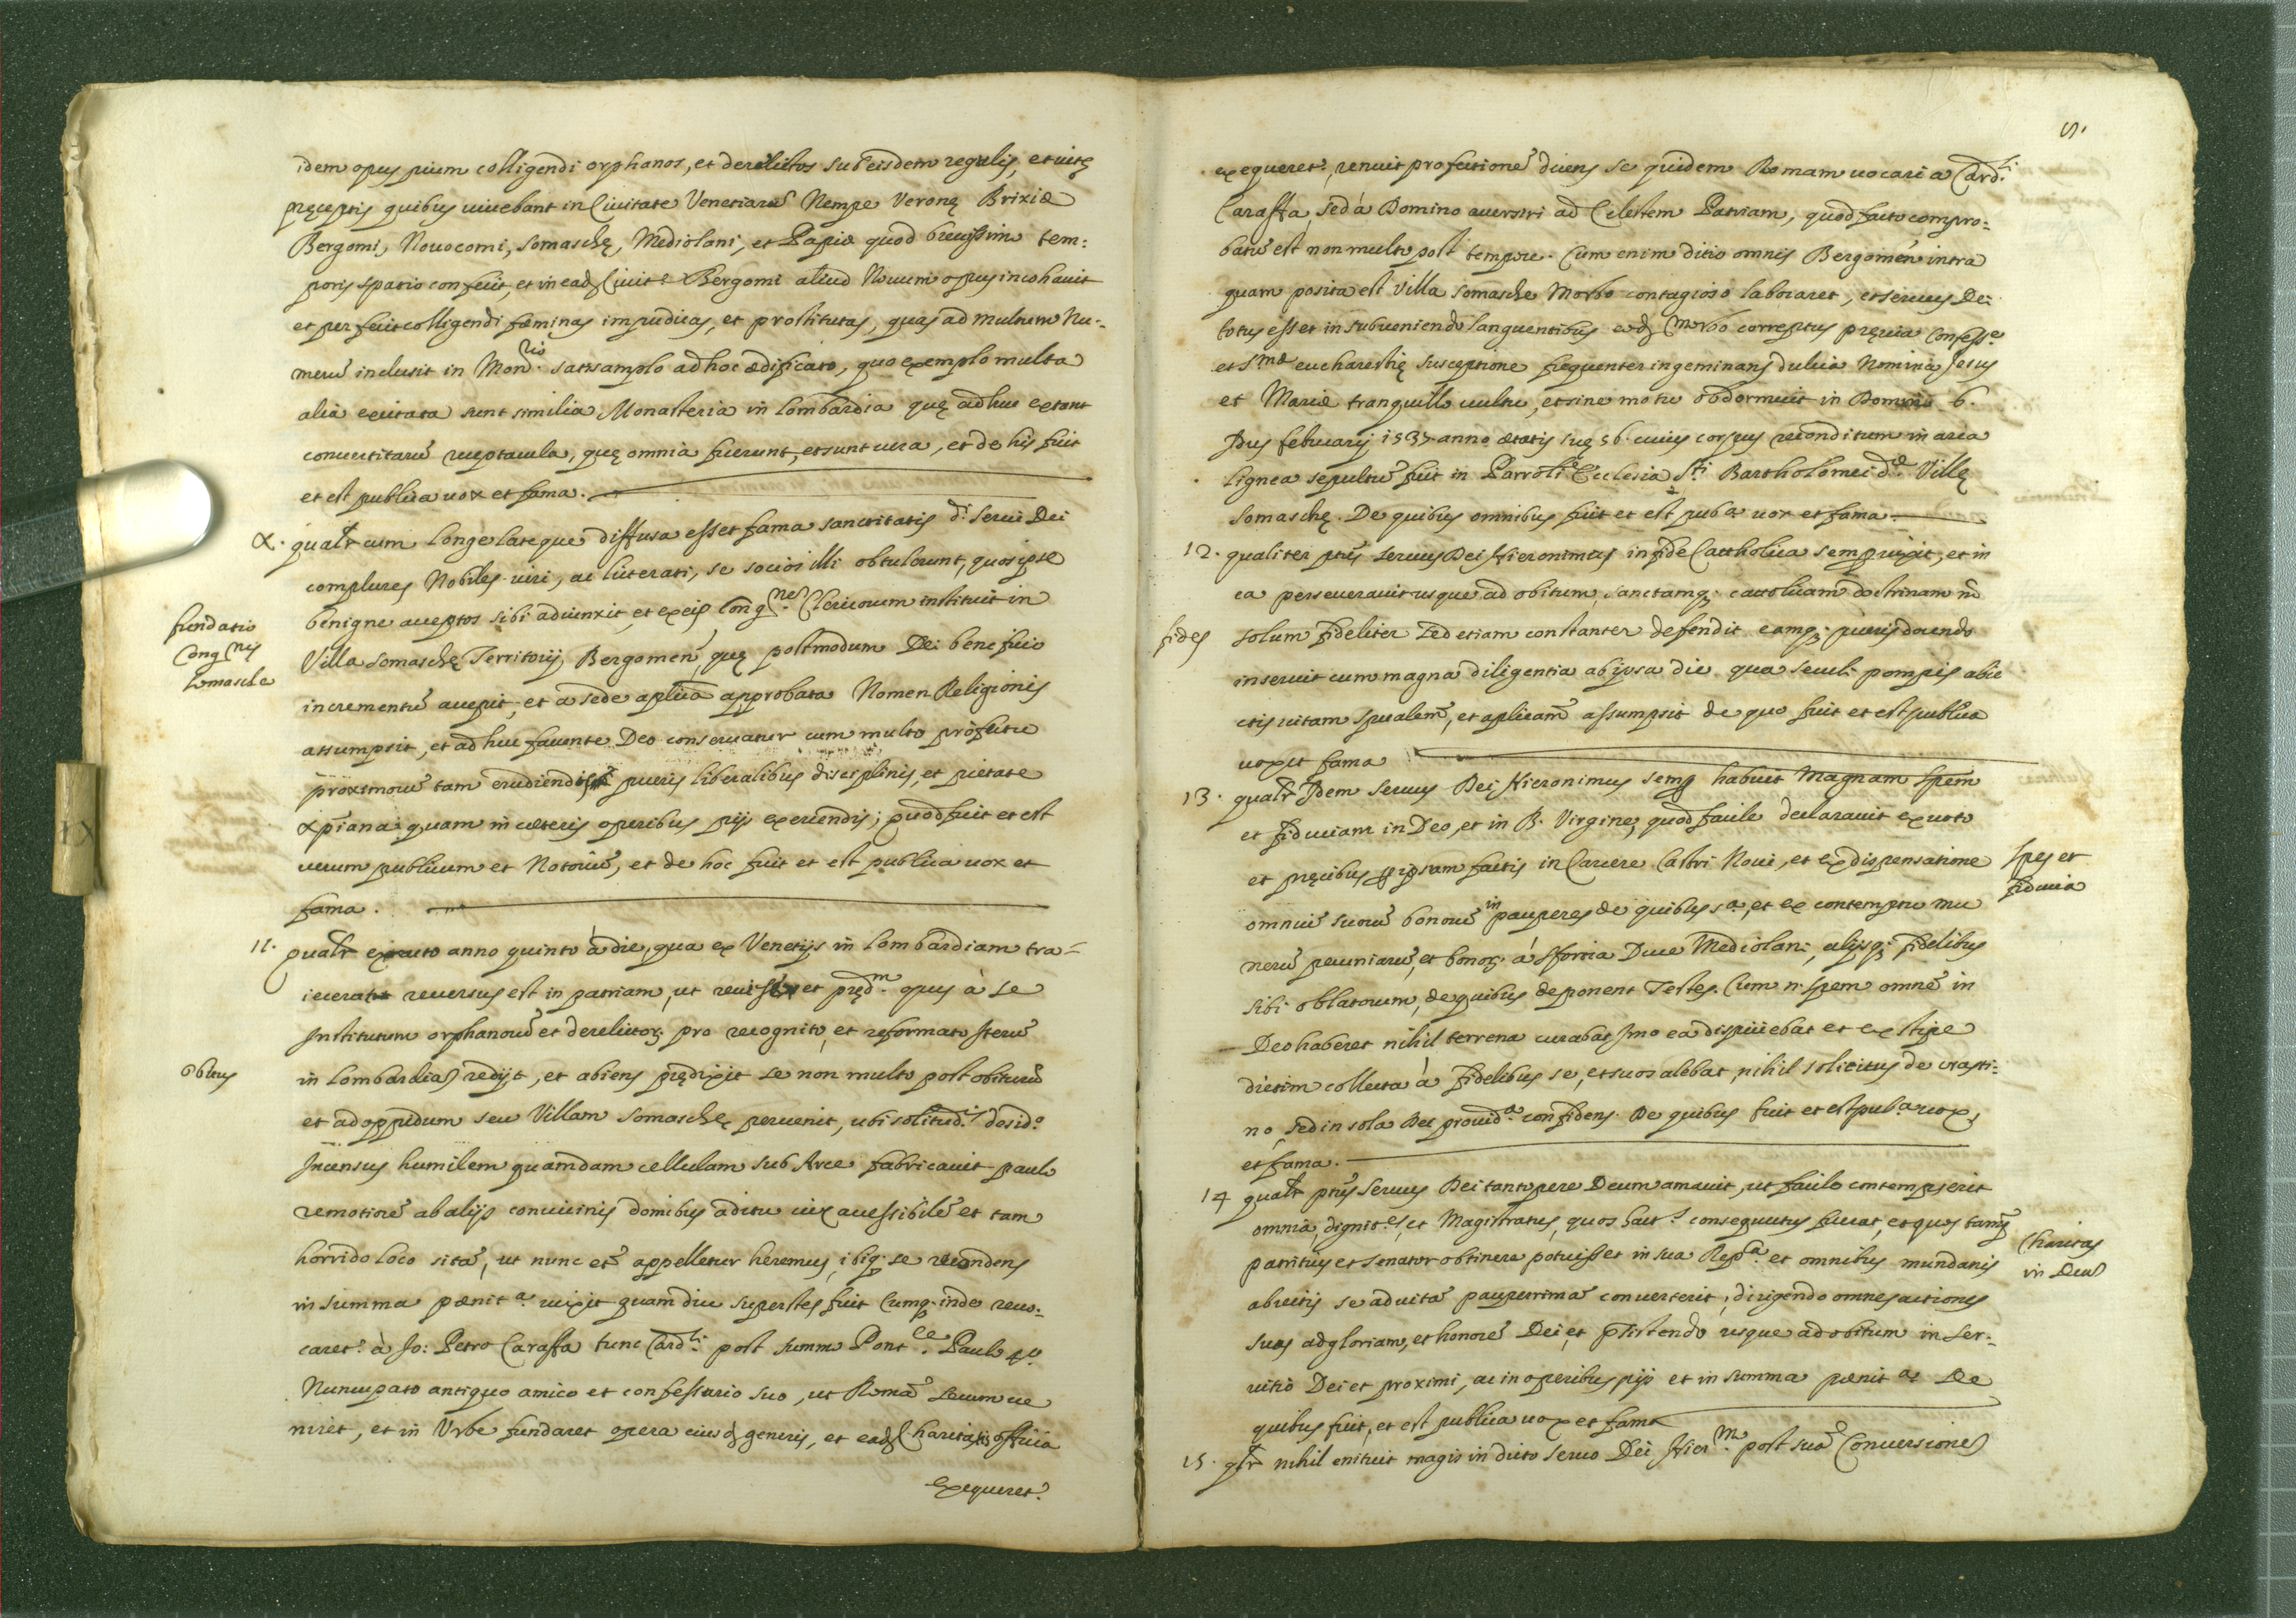 idem opus pium colligendi orphanos, et derelictos sub eisdem regulis, et vitę
pręceptis quibus vivebant in Civitate Venetiarũ Nempe Veronę Brixiæ
Bergomi, Novocomi, Somaschę, Mediolani, et Papiæ quod brevissimo tem:
poris spatio confecit, et in ead. Civit.e Bergomi aliud Novum opus incohavit
et perfecit colligendi fæminas impudicas, et prostitutas, quas ad multum Nu:
merũ inclusit in Mon.rio satis amplo ad hoc ædificato, quo exemplo multa
alia excitata sunt similia Monasteria in Lombardia quę adhuc extant
convertitarũ receptacula, quę omnia fuerunt, et sunt vera, et de his fuit
et est publica vox et fama.
X. qualr cum longe lateque diffusa esset fama sanctitatis d.i Servi Dei
complures Nobiles viri, ac litterati, se socios illi obtulerunt, quos ipse
benigne acceptos sibi adiunxit, et ex eis Cong.nem Clericorum instituit in
fundatio
Cong.nis
Somasche
Villa Somaschę Territorij Bergomen̄, quę postmodum Dei beneficio
incrementũ accepit, et a sede aplica approbata Nomen Religionis
assumpsit, et adhuc favente Deo conservatur cum multo profectu
proximorũ tam erudiendis pueris liberalibus disciplinis, et pietate
xp̄iana quam in cæteris operibus pijs exercendis; quod fuit et est
verum publicum et Notoriũ, et de hoc fuit et est publica vox et
fama.
11. qualr exacto anno quinto à die, qua ex Venetijs in Lombardiam tra=
iecerat reversus est in patriam, ut reviseret pręd.m opus à se
Institutum orphanorũ et derelictor. pro recognito, et reformato Iterũ
obitus
in Lombardiã redijt, et abiens prędixit se non multo post obiturũ
et ad oppidum seu Villam Somaschę pervenit, ubi solitud.is desid.o
Incensus humilem quamdam cellulam sub Arce fabricavit paulo
remotiorẽ ab alijs convicinis domibus aditu vix accessibilẽ et tam
horrido loco sitã, ut nunc etã appelletur heremus, ibiq. se recondens
in summa pænit.a vixit quamdiu superstes fuit Cumq. inde revo:
caret.r à Jo: Petro Caraffa tunc Card.li post summo Pont.ce Paulo 4.o
Nuncupato antiquo amico et confessario suo, ut Romã secum ve
niret, et in Urbe fundaret opera eiusd. generis, et ead. Charitatis officia
exequeret.r
5.
exequeret.r, renuit profectionẽ dicens se quidem Romam vocari a Card.li
Caraffa, sed à Domino accersiri ad Celestem Patriam, quod facto compro:
batũ est non multo post tempore. Cum enim ditio omnis Bergomen̄ intra
quam posita est Villa Somasche Morbo contagioso laboraret, et servus Dei
totus esset in subveniendo languentibus eod. morbo correptus pręvia Confess.e
et S.mæ eucharestię susceptione frequenter ingeminans dulcia Nomina Jesus
et Mariæ tranquillo vultu, et sine motu obdormivit in Domino 6.
Idus februarij 1537 anno ætatis suę 56. cuius corpus reconditum in arca
lignea sepultũ fuit in Parroli Ecclesia S.ti Bartholomei d.æ Villę
Somaschę. De quibus omnibus fuit et est pub.a vox et fama.
12. qualiter ptũs servus Dei Hieronimus in fide Catholica semp vixit, et in
ea perseveravit usque ad obitum, sanctamq. cattolicam doctrinam nõ
fides
solum fideliter sed etiam constanter defendit eamq. pueris docendo
inservit cum magna diligentia ab ipsa die qua seculi pompis abie
ctis vitam spualem, et aplicam̃ assumpsit de quo fuit et est publica
vox et fama
13. qualr Idem servus Dei Hieronimus semp habuit Magnam spem
et fiduciam in Deo, et in B. Virgine, quod facile declaravit ex voto
et pręcibus p ipsum factis in Carcere Castri Novi, et ex dispensatione
spes et
fiducia
omniũ suorũ bonorũ in pauperes de quibus s.a, et ex contemptu mu
nerũ pecuniarũ, et bonor. à Sfortia Duce Mediolani, alijsq. fidelibus
sibi oblatorum, de quibus deponent Testes. Cum n. spem omnẽ in
Deo haberet nihil terrena curabat Imo ea dispiciebat et ex stipe
dietim collecta à fidelibus se, et suos alebat, nihil solicitus de crasti:
no, sed in sola Dei provid.a confidens. De quibus fuit et est pub.a vox,
et fama.
14 qualr ptũs servus Dei tantopere Deum amavit, ut facile contempserit
omnia, dignit.es, et Magistratus, quos hact.s consequutus fuerat, et quos tamq
Charitas
in Deũ
patritius et senator obtinere potuisset in sua Rep.ca et omnibus mundanis
abiectis se ad vitã pauperrimã converterit, dirigendo omnes actiones
suas ad gloriam, et honorẽ Dei, et psistendo usque ad obitum in ser:
vitio Dei et proximi, ac in operibus pijs et in summa pænit.a De
quibus fuit, et est publica vox et fama
15. qlr nihil enituit magis in dicto servo Dei Hier.mo post suã Conversionẽ